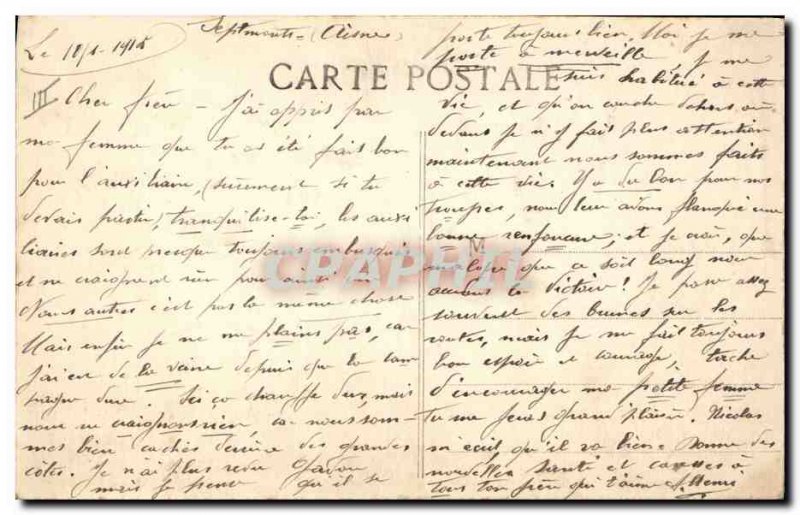 Le 18/1-1915
Septmonts (Aisne)
CARTE POSTALE
III
Cher frère - J'ai appris par
ma femme que tu as été fait bon
pour l'auxiliaire, (surement si tu
devais partir), tranquilise-toi, les auxi
liaires sont presque toujours embusqués
et ne craignent rien pour ainsi
Nous autres c'est pas la même chose
Mais enfin je ne me plains pas, car
j'ai eu de la veine depuis que la cam
pagne dure. Ici ça chauffe dur, mais
nous ne craignons rien, car nous som-
mes bien cachés derrière des grandes
côtes. Je n'ai plus revu
mais je pense qu'il se
porte toujours bien. Moi je me
porte à merveille, je me
suis habitué à cette
vie, et qu'on couche dehors ou
dedans je n'y fais plus attention
maintenant nous sommes faits
à cette vie. Y a du bon pour nos
troupes, nous leur avons flanqué une
bonne, et je crois, que
malgré que ce soit long nous
aurons la Victoire! Je passe assez
souvent des brunes sur les
routes, mais je me fait toujours
bon espoir et courage, tache
d'encourager ma petite femme
tu me feras grand plaisir. Nicolas
m'écrit qu'il va bien. Donne des
nouvelles santé et caresses à
tous ton frère qui t'aime Henri
CPAPHIL